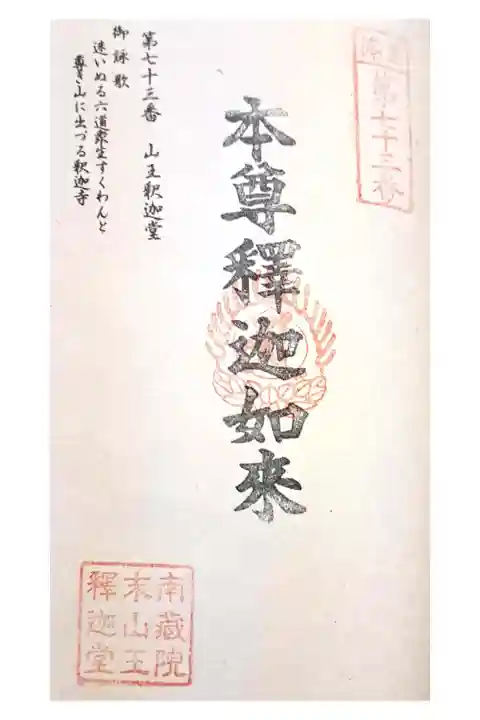 第七十三番
本尊釋迦如來
第七十三番　山王釈迦堂
御詠歌
迷いぬる六道衆生すくわんと
尊き山に出づる釈迦寺
南藏院
末山王
釋迦堂